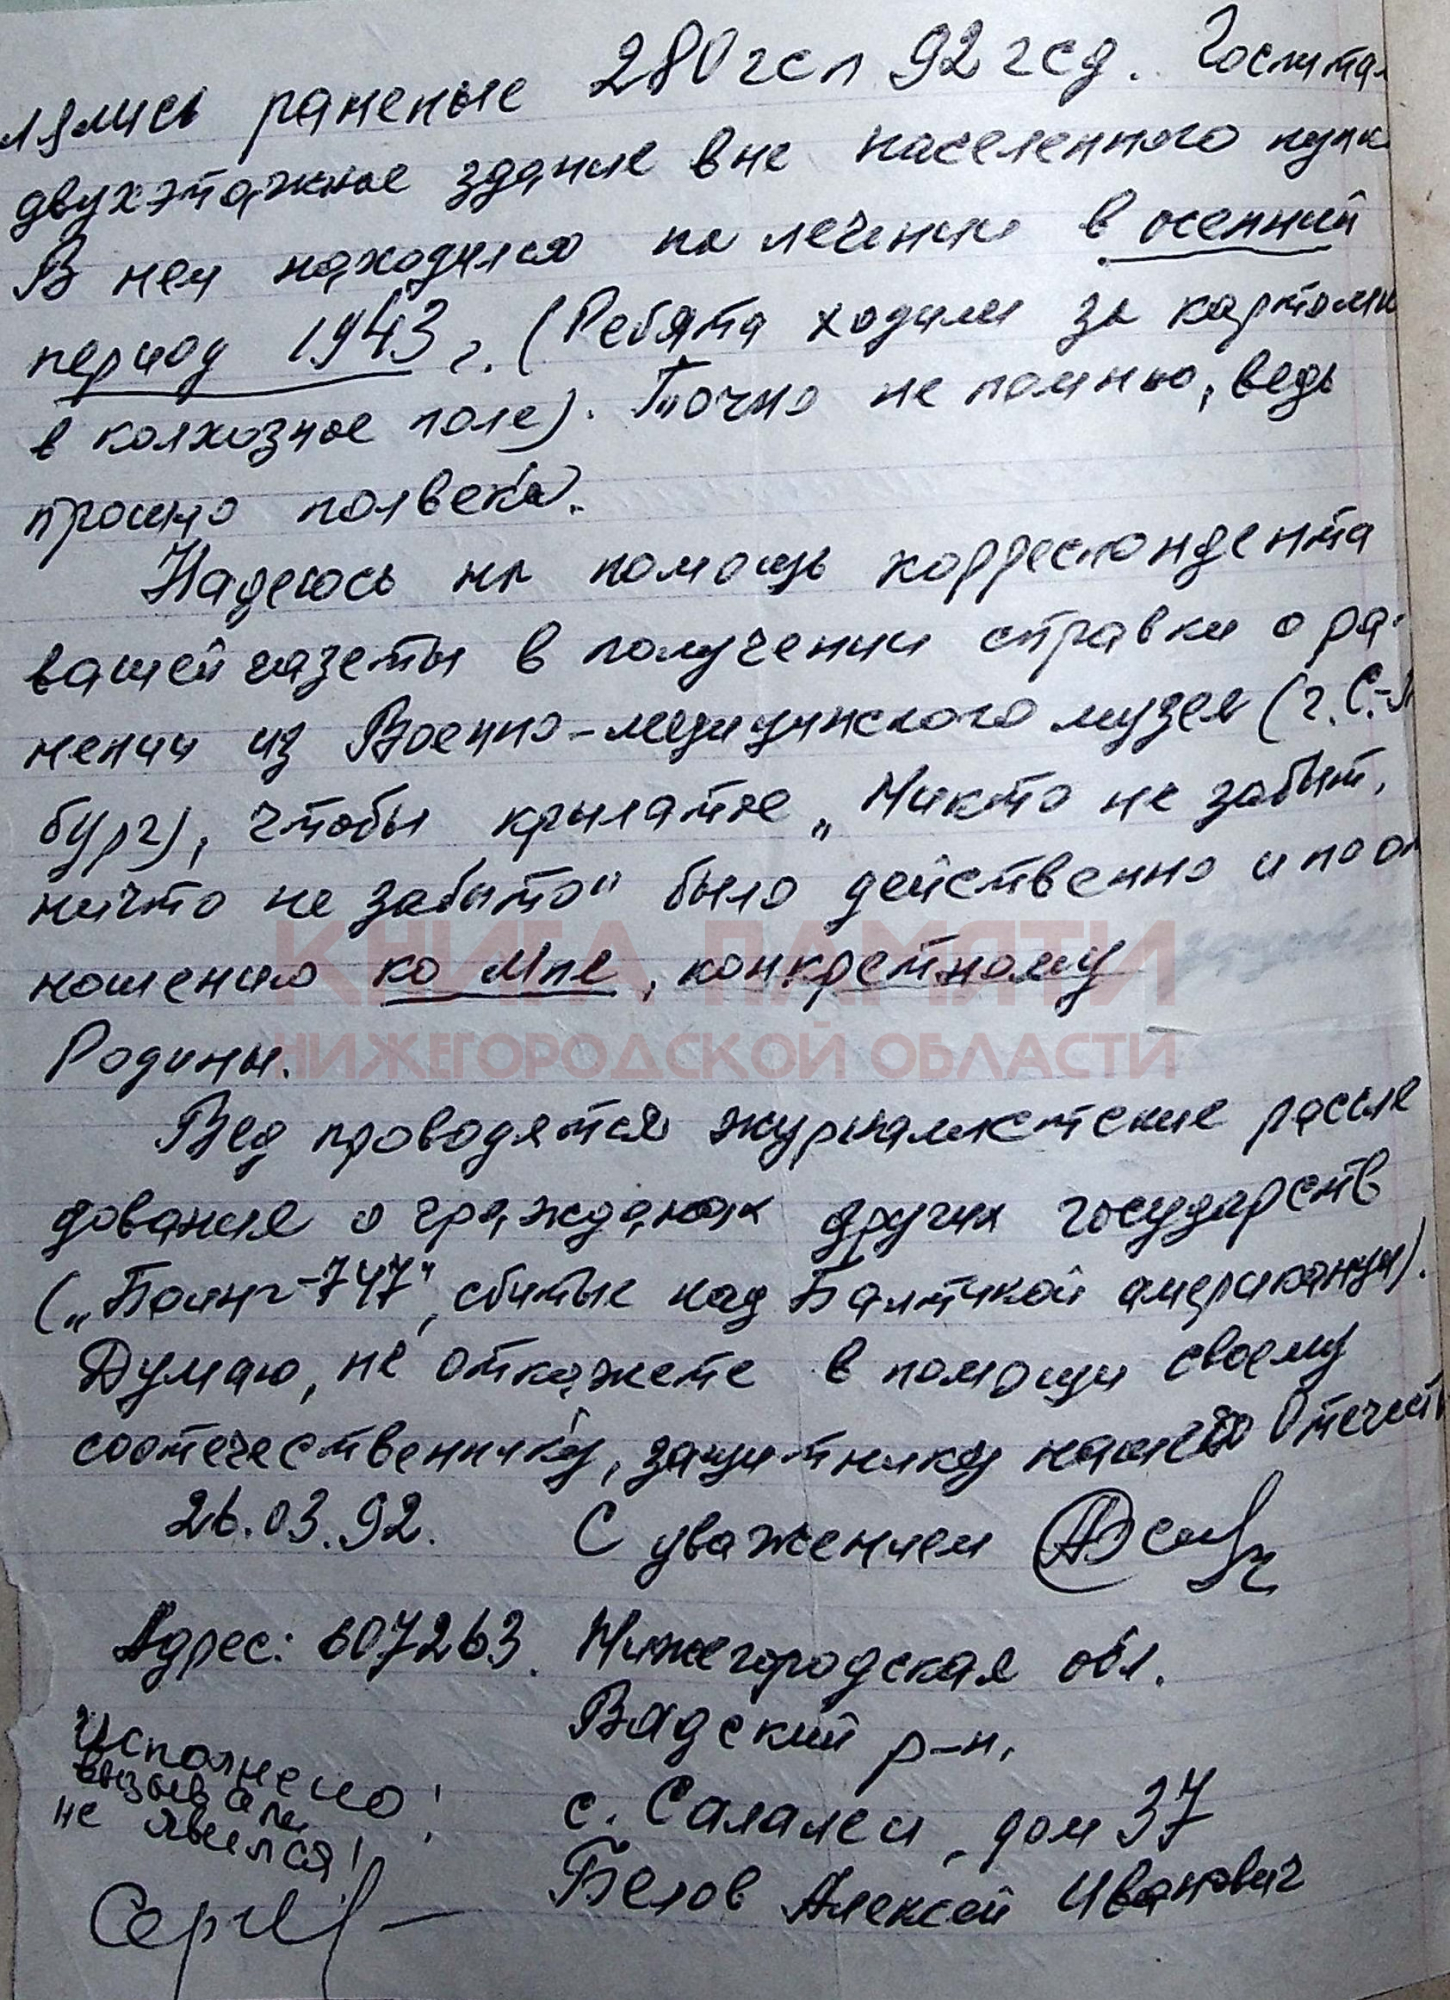 лялись раненые 280 гсп 92 гсд. Госпитал
двухэтажное здание вне населенного пунк
В нем находился на лечении в осенний
период 1943 г. (Ребята ходили за картошк
в колхозное поле). Точно не помню, ведь
прошло полвека.
Надеюсь на помощь корреспондента
вашей газеты в получении справки о ра-
нении из Военно-медицинского музея (г. С.-П
бург), чтобы крылатое „Никто не забыт,
ничто не забыто" было действенно и по от
ношению ко мне, конкретному
КНИГА ПАМЯТИ
Родины.
НИЖЕГОРОДСКОЙ ОБЛАСТИ
Вед проводятся журналистские рассле
дования о гражданах других государств
(„Боинг-747", сбитые над Балтикой американцы).
Думаю, не откажете в помощи своему
соотечественнику, защитнику нашего Отечеств
26.03.92. С уважением
Адрес: 607263. Нижегородская обл.
Вадский р-н,
с. Салалеи, дом 37
Белов Алексей Иванович
Исполнено!
вызывали
не явился!